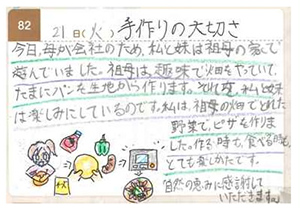 82
21日(火) 手作りの大切さ
今日、母が会社のため、私と妹は祖母の家で
遊んでいました。祖母は、趣味で畑をやっていて、
たまにパンを生地から作ります。それを、私と妹
は楽しみにしているのです。私は、祖母の畑でとれた
野菜で、ピザを作りま
した。作る時も、食べる時も、
とても楽しかったです。
自然の恵みに感謝して
いただきます。
チーズ